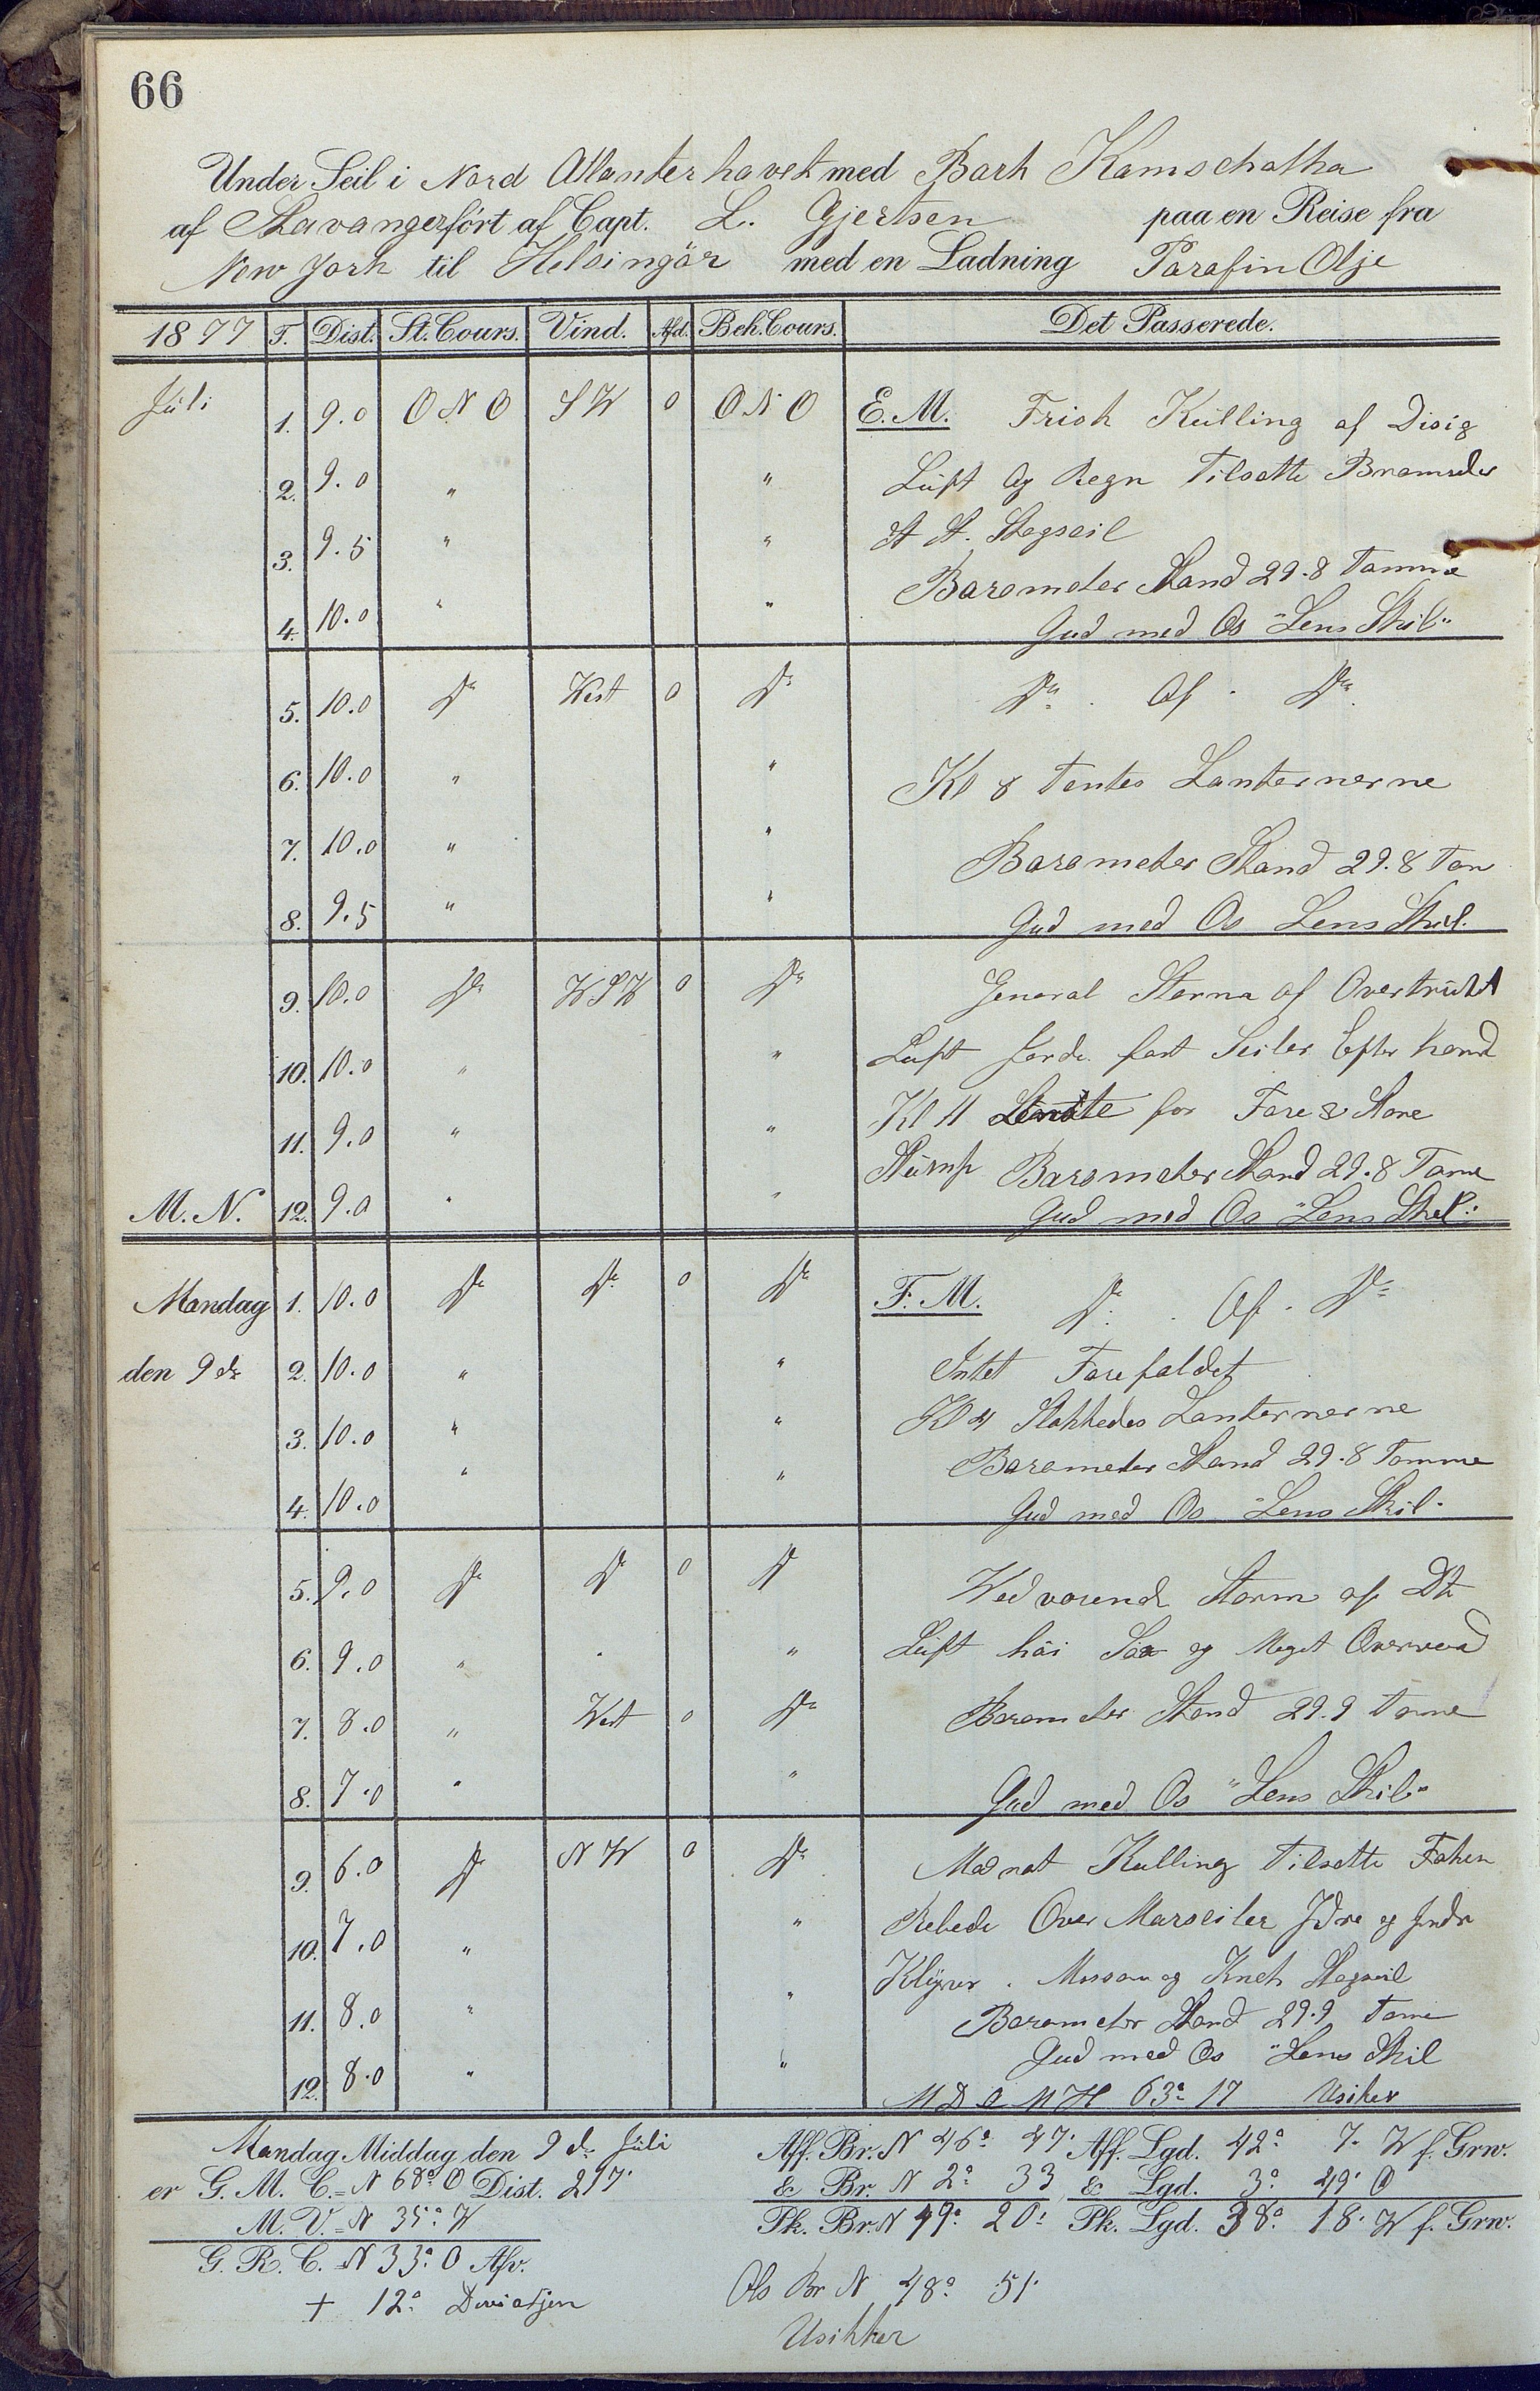 66
Under Seil i Nord Atlanterhavet med Bark Kamschatka
af Stavanger fört af Capt. L. Gjertsen paa en Reise fra
New York til Helsingör med en Ladning Parafin Olje
1877 T. Dist. St. Cours. Vind. Afd. Beh. Cours. Det Passerede.
Juli 1. 9.0 ONO SW 0 ONO E.M. Frisk Kulling af Disig
2. 9.0 " " Luft og Regn Tilsatte
3. 9.5 " " St. Stagseil
Barometer Stand 29.8 Tomme
4. 10.0 " " Gud med Os "Lens Skib"
5. 10.0 Do West 0 Do Do. Af. Do.
6. 10.0 " " Kl 8 Tentes Lanternerne
7. 10.0 " " Barometer Stand 29.8 Tom
8. 9.5 " " Gud med Os Lens Skib.
9. 10.0 Do WSW 0 Do General Storm af Overtrukket
10. 10.0 " " Luft Jorde fast Seiler Efter haand
11. 9.0 " " Kl 11 Lenste for Fore & Store
Stump Barometer Stand 29.8 Tome
M.N. 12. 9.0 " " Gud med Os "Lens Skib"
Mandag 1. 10.0 Do Do 0 Do F.M. Do. Af. Do
den 9de 2. 10.0 " " Intet Forefaldet
3. 10.0 " " Kl 4 Slukkedes Lanternerne
Barometer Stand 29.8 Tomme
4. 10.0 " " Gud med Os "Lens Skib"
5. 9.0 Do Do 0 Do Wedvarende Storm af Do
6. 9.0 " " " Luft höi Söe og Meget Overvand
7. 8.0 " West 0 Do Barometer Stand 29.9 Tomme
8. 7.0 " " Gud med Os "Lens Skib"
9. 6.0 Do NW 0 Do Modnat Kulling Tilsatte Foken
10. 7.0 " " Rebede Over Marseiler Ydre og Indr
11. 8.0 " " Klyver. Messan og Stagseil
Barometer Stand 29.9 Tome
Gud med Os "Lens Skib
12. 8.0 " " M D O M H 63° 17 Usiker
Mandag Middag den 9de Juli Aff. Br. N 46° 47' Aff. Lgd. 42° 7' W f. Grw.
er G. M. C. = N 68° O Dist. 217' & Br. N 2° 33 & Lgd. 3° 49' O
M. V. = N 35° W Pk. Br. N 49° 20' Pk. Lgd. 38° 18' W f. Grw.
G. R. C. = N 33° O Afv.
+ 12° Deviatjen Obs Br N 48° 51'
Usikker